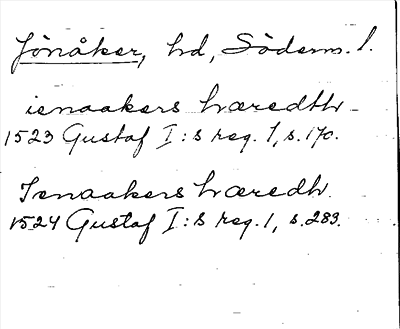 Jönåker, hd, Söderm. l.
ienaakers hæredth
1523 Gustaf I:s reg. 1, s. 170.
Ienaakers hæredh.
1524 Gustaf I:s reg. 1, s. 283.